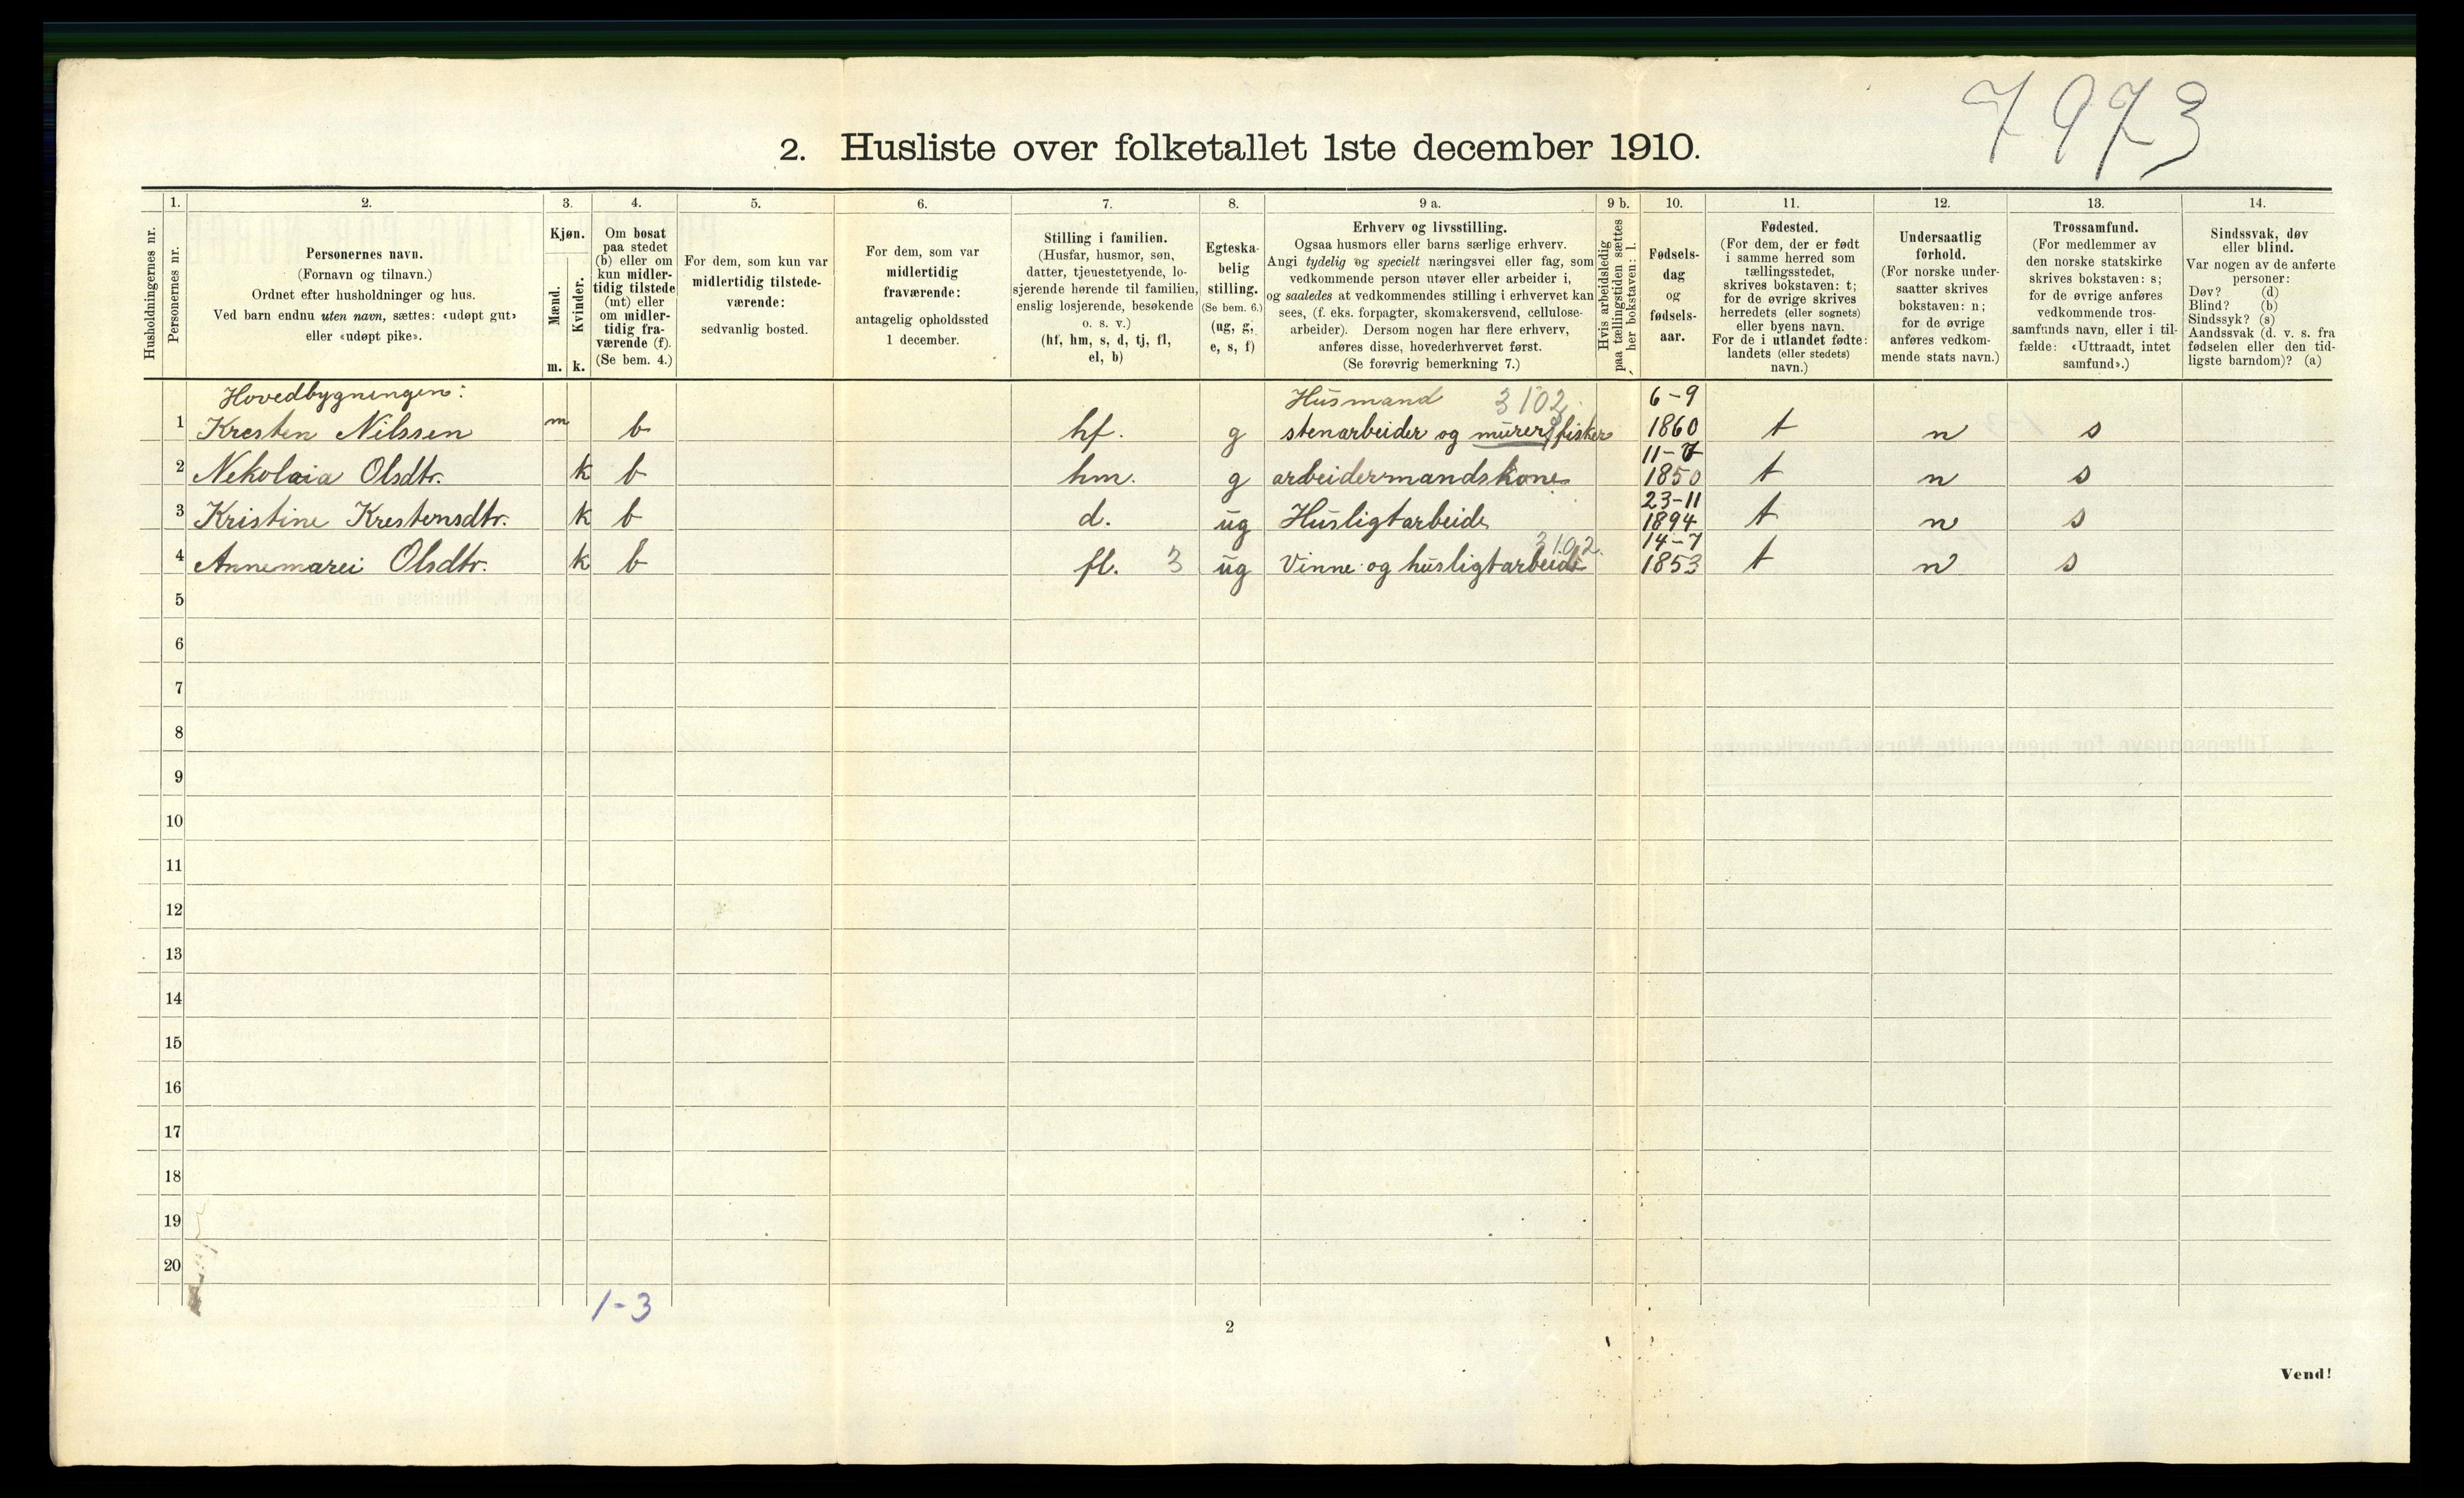 7973
2. Husliste over folketallet 1ste december 1910.
Husholdningernes nr.
1.
Personernes nr.
2.
Personernes navn.
(Fornavn og tilnavn.)
Ordnet efter husholdninger og hus.
Ved barn endnu uten navn, sættes: «udøpt gut»
eller «udøpt pike».
3.
Kjøn.
Mænd.
Kvinder.
m. k.
4.
Om bosat
paa stedet
(b) eller om
kun midler-
tidig tilstede
(mt) eller
om midler-
tidig fra-
værende (f).
(Se bem. 4.)
5.
For dem, som kun var
midlertidig tilstede-
værende:
sedvanlig bosted.
6.
For dem, som var
midlertidig
fraværende:
antagelig opholdssted
1 december.
7.
Stilling i familien.
(Husfar, husmor, søn,
datter, tjenestetyende, lo-
sjerende hørende til familien,
enslig losjerende, besøkende
o. s. v.)
(hf, hm, s, d, tj, fl,
el, b)
8.
Egteska-
belig
stilling.
(Se bem. 6.)
(ug, g,
e, s, f)
9 a.
Erhverv og livsstilling.
Ogsaa husmors eller barns særlige erhverv.
Angi tydelig og specielt næringsvei eller fag, som
vedkommende person utøver eller arbeider i,
og saaledes at vedkommendes stilling i erhvervet kan
sees, (f. eks. forpagter, skomakersvend, cellulose-
arbeider). Dersom nogen har flere erhverv,
anføres disse, hovederhvervet først.
(Se forøvrig bemerkning 7.)
9 b.
Hvis arbeidsledig
paa tællingstiden sættes
her bokstaven: l.
10.
Fødsels-
dag
og
fødsels-
aar.
11.
Fødested.
(For dem, der er født
i samme herred som
tællingsstedet,
skrives bokstaven: t;
for de øvrige skrives
herredets (eller sognets)
eller byens navn.
For de i utlandet fødte:
landets (eller stedets)
navn.)
12.
Undersaatlig
forhold.
(For norske under-
saatter skrives
bokstaven: n;
for de øvrige
anføres vedkom-
mende stats navn.)
13.
Trossamfund.
(For medlemmer av
den norske statskirke
skrives bokstaven: s;
for de øvrige anføres
vedkommende tros-
samfunds navn, eller i til-
fælde: «Uttraadt, intet
samfund».)
14.
Sindssvak, døv
eller blind.
Var nogen av de anførte
personer:
Døv? (d)
Blind? (b)
Sindssyk? (s)
Aandssvak (d. v. s. fra
fødselen eller den tid-
ligste barndom)? (a)
Hovedbygningen: Husmand 3102. 6-9
1 Kresten Nilssen m b hf. g stenarbeider og murer, fisker 1860 t n s
11-7
2 Nekolaia Olsdtr. k b hm. g arbeidermandskone 1850 t n s
23-11
3 Kristine Krestensdtr. k b d. ug Husligtarbeide 1894 t n s
3102. 14-7
4 Annemarei Olsdtr. k b fl. 3 ug Vinne og husligtarbeide 1853 t n s
5
6
7
8
9
10
11
12
13
14
15
16
17
18
19
20
1-3
2
Vend!